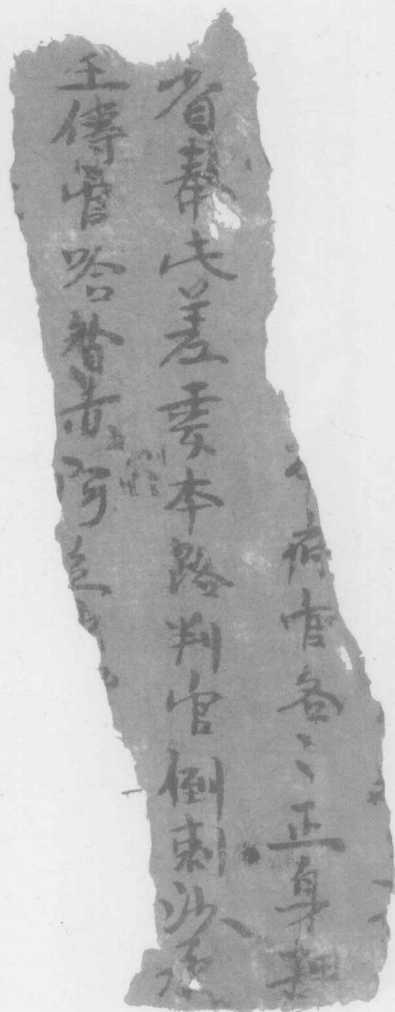 府官各〻正身
省奉此差委本路判官倒剌沙
王傅官哈昝赤阿